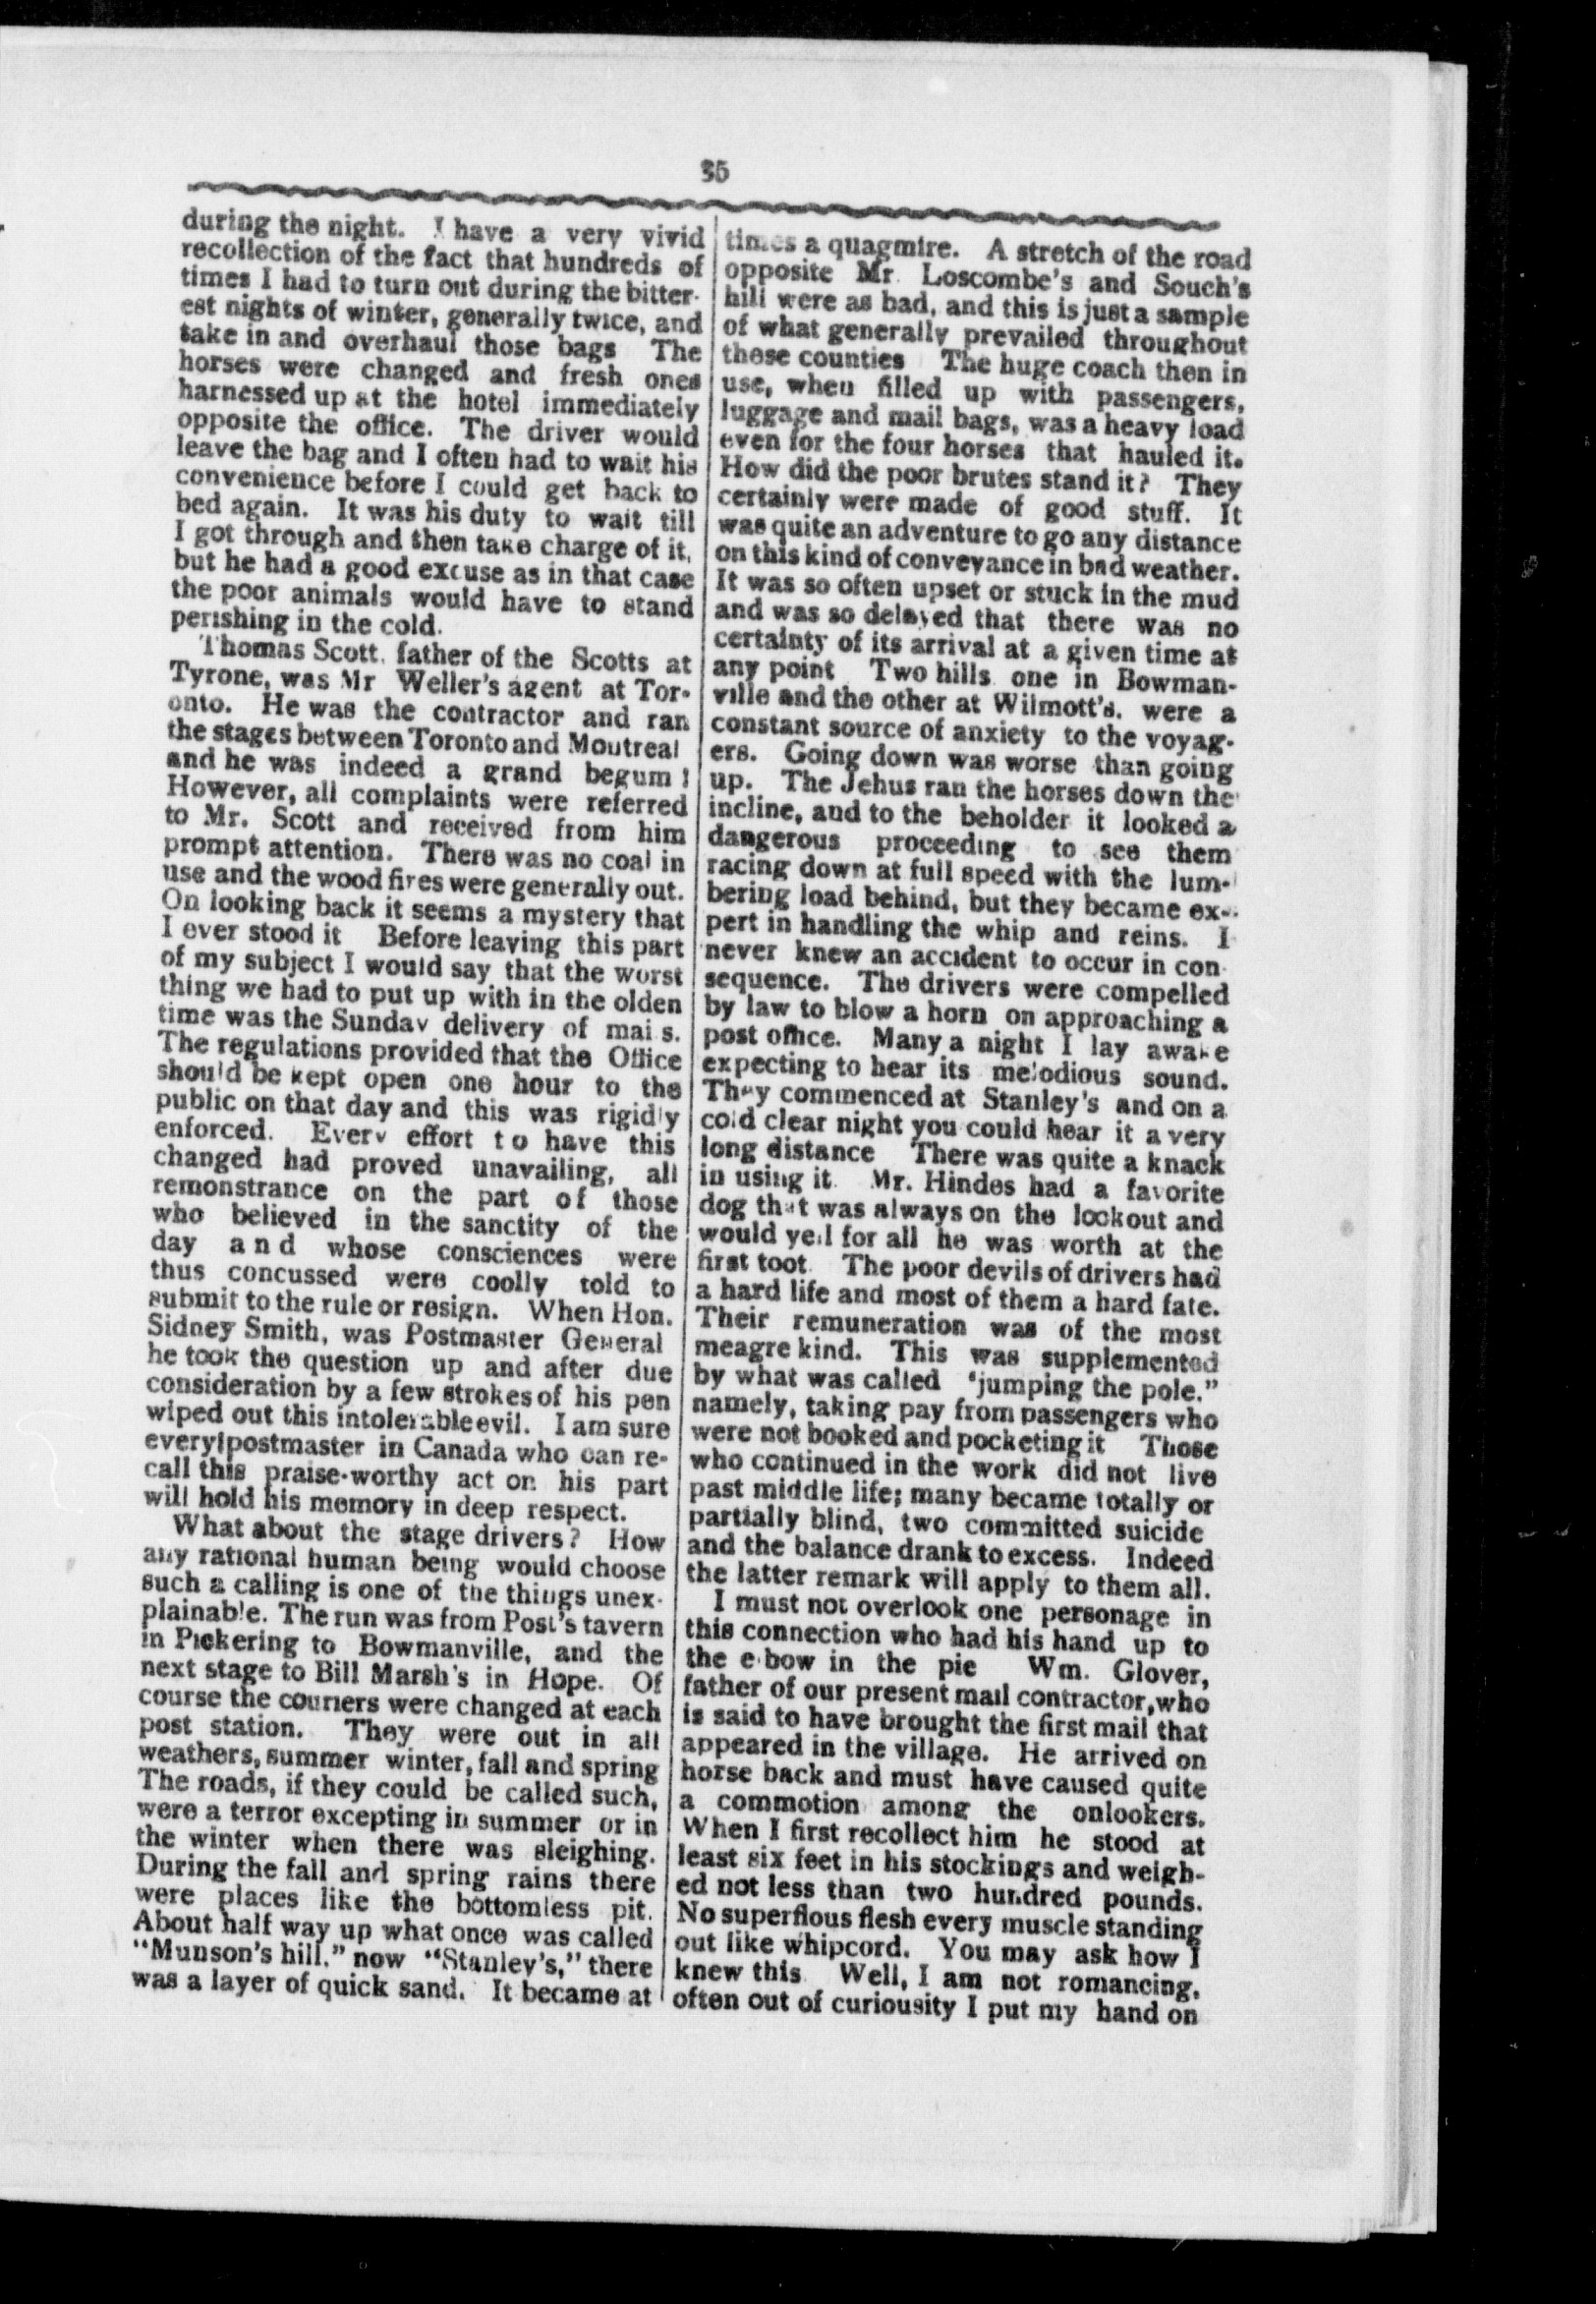 35
during the night. I have a very vivid
recollection of the fact that hundreds of
times I had to turn out during the bitter-
est nights of winter, generally twice, and
take in and overhaul those bags The
horses were changed and fresh ones
harnessed up at the hotel immediately
opposite the office. The driver would
leave the bag and I often had to wait his
convenience before I could get back to
bed again. It was his duty to wait till
I got through and then take charge of it,
but he had a good excuse as in that case
the poor animals would have to stand
perishing in the cold.
Thomas Scott, father of the Scotts at
Tyrone, was Mr Weller's agent at Tor-
onto. He was the contractor and ran
the stages between Toronto and Montreal
and he was indeed a grand begum !
However, all complaints were referred
to Mr. Scott and received from him
prompt attention. There was no coal in
use and the wood fires were generally out.
On looking back it seems a mystery that
I ever stood it Before leaving this part
of my subject I would say that the worst
thing we had to put up with in the olden
time was the Sunday delivery of mai s.
The regulations provided that the Office
should be kept open one hour to the
public on that day and this was rigidly
enforced. Every effort to have this
changed had proved unavailing, all
remonstrance on the part of those
who believed in the sanctity of the
day and whose consciences were
thus concussed were coolly told to
submit to the rule or resign. When Hon.
Sidney Smith, was Postmaster General
he took the question up and after due
consideration by a few strokes of his pen
wiped out this intolerable evil. I am sure
every postmaster in Canada who can re-
call this praise-worthy act on his part
will hold his memory in deep respect.
What about the stage drivers? How
any rational human being would choose
such a calling is one of the things unex-
plainable. The run was from Post's tavern
in Pickering to Bowmanville, and the
next stage to Bill Marsh's in Hope. Of
course the couriers were changed at each
post station. They were out in all
weathers, summer winter, fall and spring
The roads, if they could be called such,
were a terror excepting in summer or in
the winter when there was sleighing.
During the fall and spring rains there
were places like the bottomless pit.
About half way up what once was called
"Munson's hill." now "Stanley's," there
was a layer of quick sand. It became at
times a quagmire. A stretch of the road
opposite Mr. Loscombe's and Souch's
hill were as bad, and this is just a sample
of what generally prevailed throughout
these counties The huge coach then in
use, when filled up with passengers,
luggage and mail bags, was a heavy load
even for the four horses that hauled it.
How did the poor brutes stand it? They
certainly were made of good stuff. It
was quite an adventure to go any distance
on this kind of conveyance in bad weather.
It was so often upset or stuck in the mud
and was so delayed that there was no
certainty of its arrival at a given time at
any point Two hills one in Bowman-
ville and the other at Wilmott's, were a
constant source of anxiety to the voyag-
ers. Going down was worse than going
up. The Jehus ran the horses down the
incline, and to the beholder it looked a
dangerous proceeding to see them
racing down at full speed with the lum-
bering load behind, but they became ex-
pert in handling the whip and reins. I
never knew an accident to occur in con
sequence. The drivers were compelled
by law to blow a horn on approaching a
post office. Many a night I lay awake
expecting to hear its melodious sound.
They commenced at Stanley's and on a
cold clear night you could hear it a very
long distance There was quite a knack
in using it. Mr. Hindes had a favorite
dog that was always on the lookout and
would yell for all he was worth at the
first toot. The poor devils of drivers had
a hard life and most of them a hard fate.
Their remuneration was of the most
meagre kind. This was supplemented
by what was called 'jumping the pole."
namely, taking pay from passengers who
were not booked and pocketing it Those
who continued in the work did not live
past middle life; many became totally or
partially blind, two committed suicide
and the balance drank to excess. Indeed
the latter remark will apply to them all.
I must not overlook one personage in
this connection who had his hand up to
the elbow in the pie Wm. Glover,
father of our present mail contractor, who
is said to have brought the first mail that
appeared in the village. He arrived on
horse back and must have caused quite
a commotion among the onlookers.
When I first recollect him he stood at
least six feet in his stockings and weigh-
ed not less than two hundred pounds.
No superflous flesh every muscle standing
out like whipcord. You may ask how I
knew this Well, I am not romancing,
often out of curiousity I put my hand on